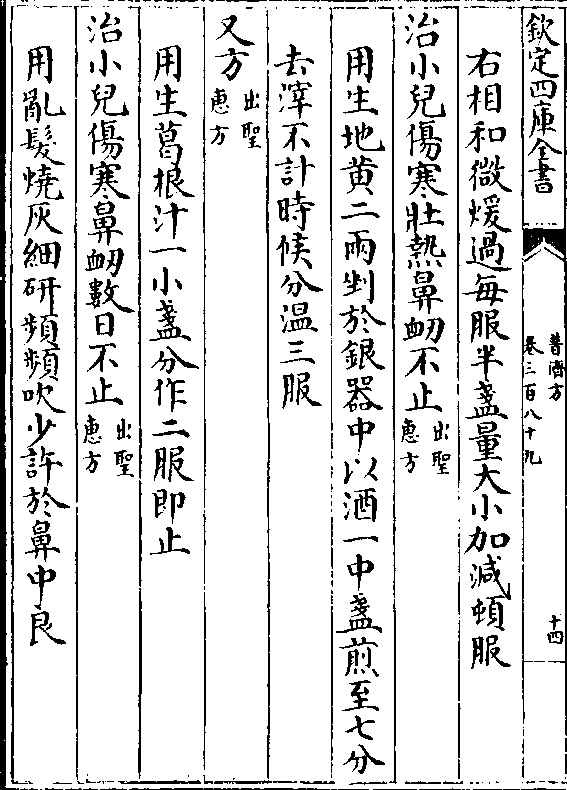 欽定四庫全書
普濟方
卷三百八十九
十四
右相和微煖過每服半盞量大小加減頓服
治小兒傷寒壯熱鼻衂不止出聖惠方
用生地黄二兩剉於銀器中以酒一中盞煎至七分
去滓不計時候分温三服
又方出聖惠方
用生葛根汁一小盞分作二服即止
治小兒傷寒鼻衂數日不止出聖惠方
用亂髮燒灰細研頻頻吹少許於鼻中良